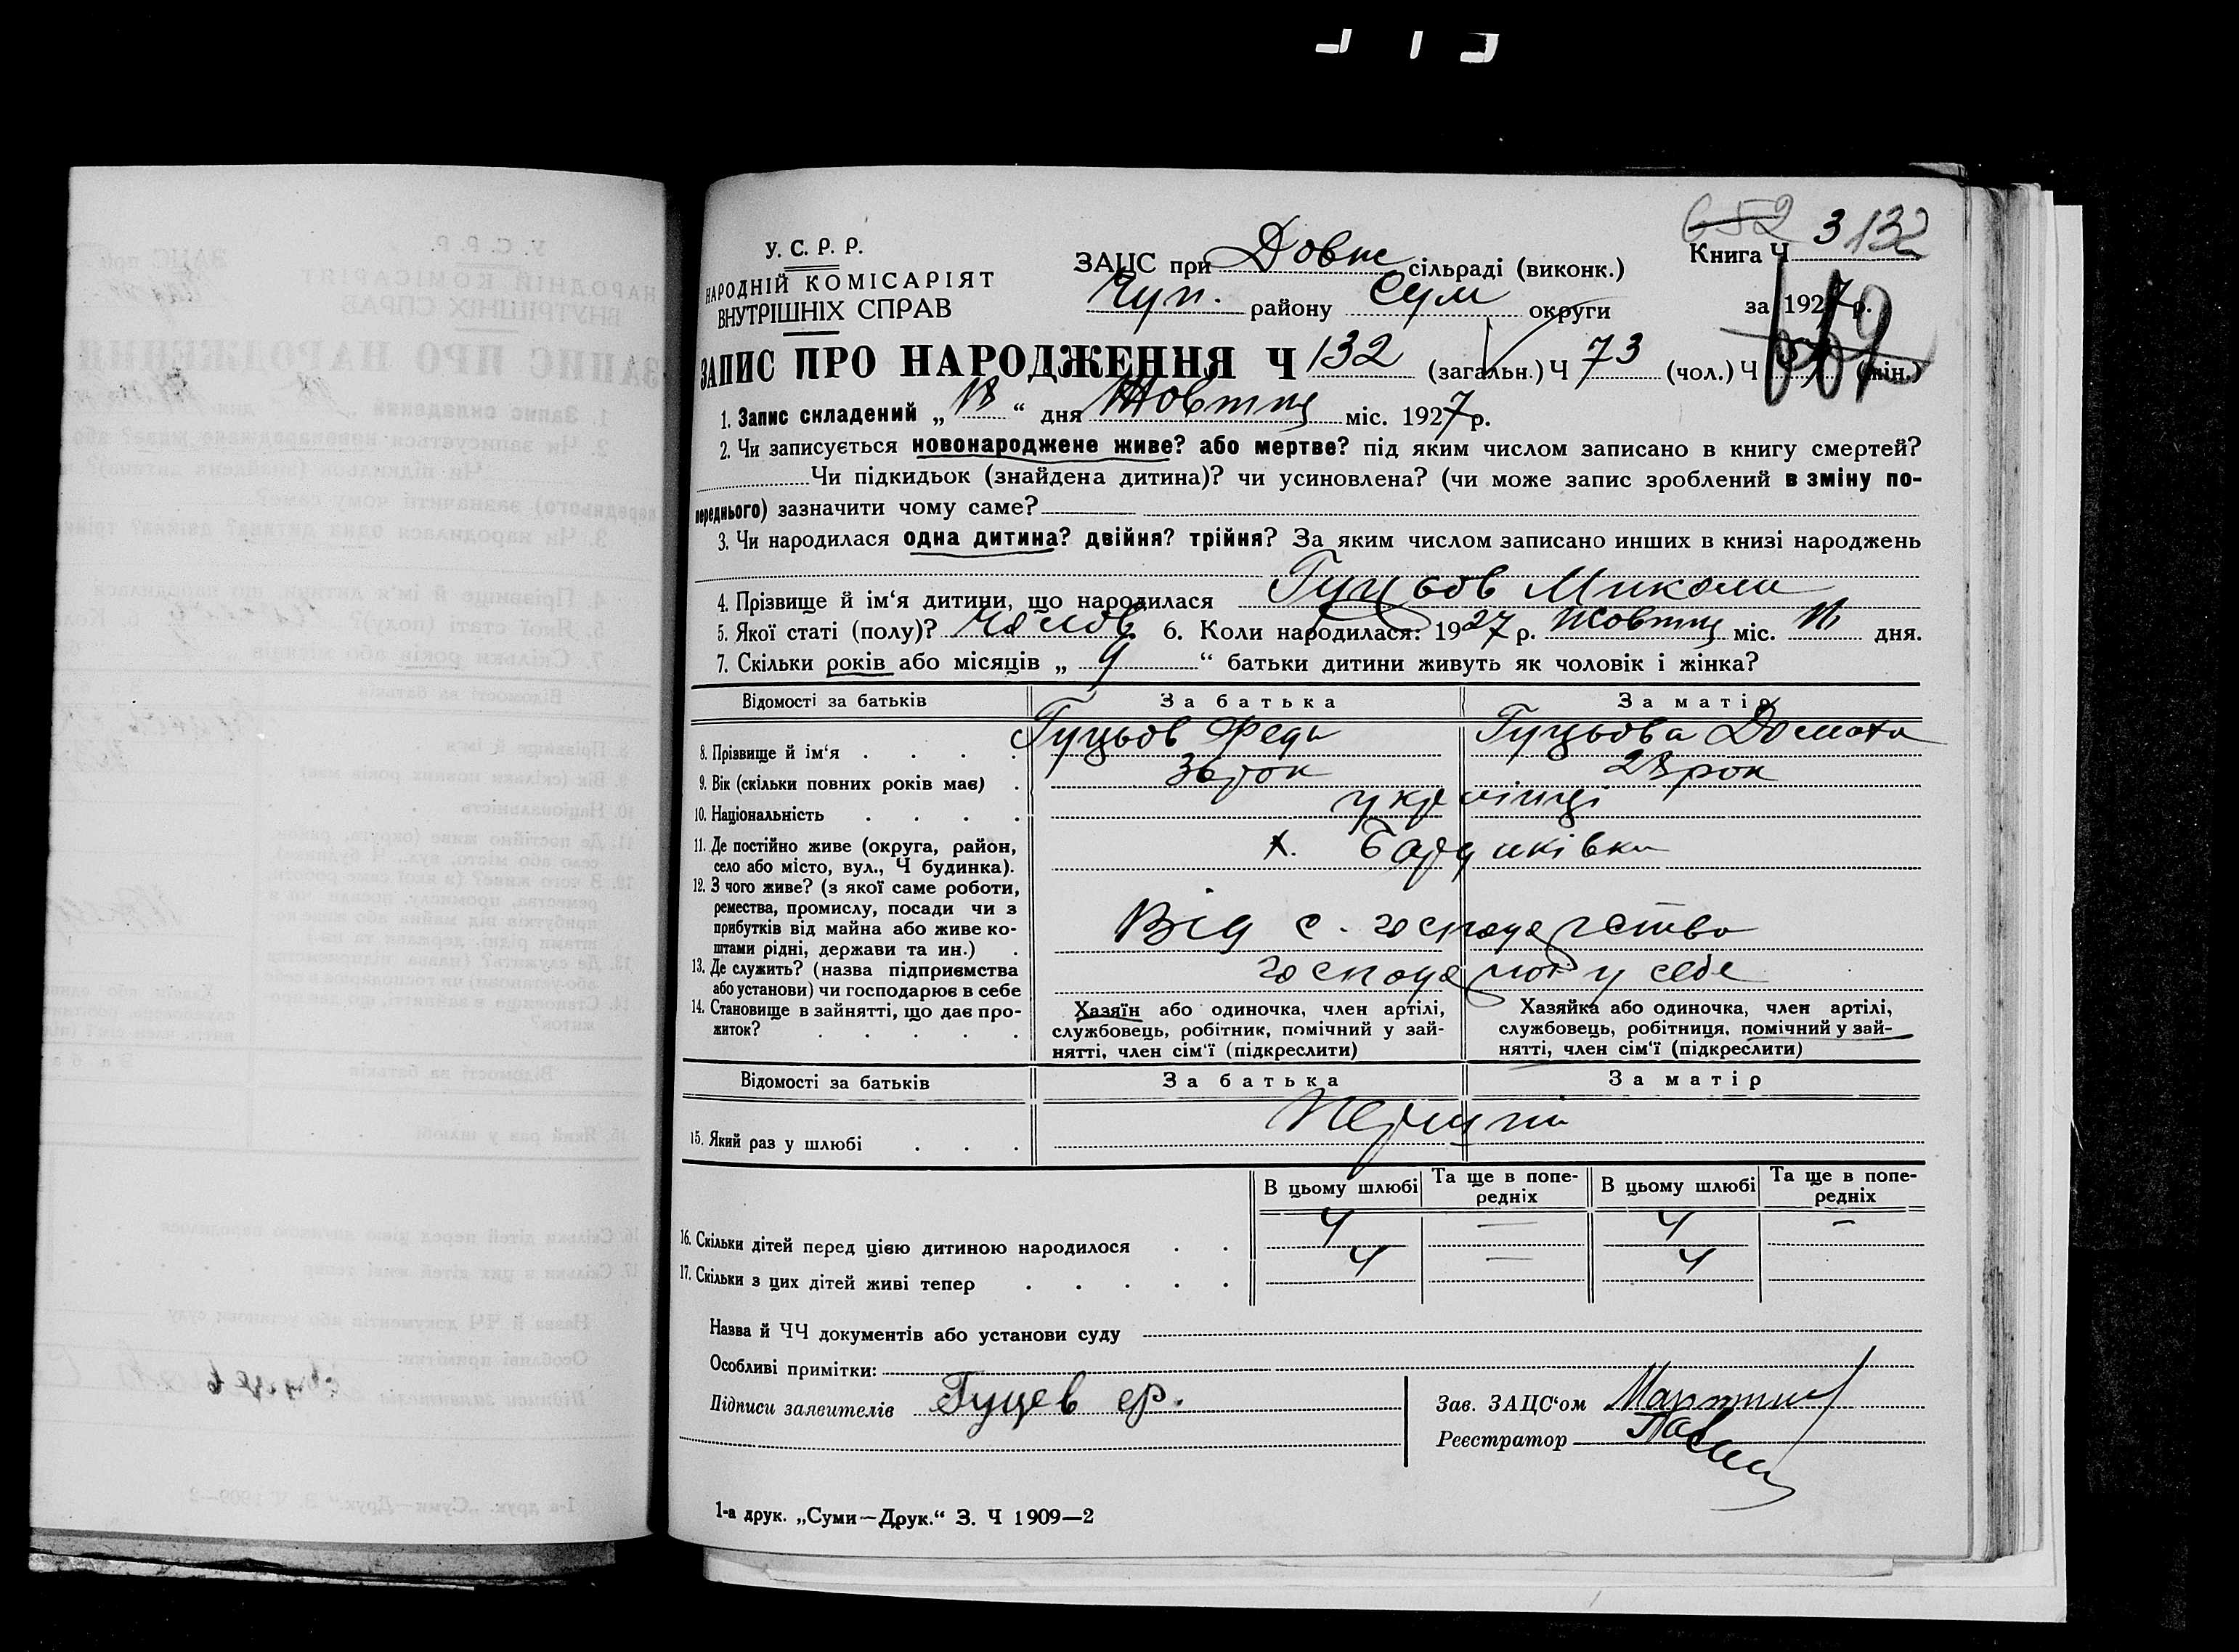 652 3 132
У. С. Р. Р.
НАРОДНІЙ КОМІСАРІЯТ
ВНУТРІШНІХ СПРАВ
ЗАЦС при Довж сільраді (виконк.)
Чуп. району Сум округи
Книга Ч
за 1927 р.
ЗАПИС ПРО НАРОДЖЕННЯ Ч 132 (загальн.) Ч 73 (чол.) Ч (жін.)
1. Запис складений „ 18 “ дня Жовтня міс. 1927 р.
2. Чи записується новонароджене живе? або мертве? під яким числом записано в книгу смертей?
Чи підкидьок (знайдена дитина)? чи усиновлена? (чи може запис зроблений в зміну по-
переднього) зазначити чому саме?
3. Чи народилася одна дитина? двійня? трійня? За яким числом записано инших в книзі народжень
4. Прізвище й ім‘я дитини, що народилася Гуцьов Микола
5. Якої статі (полу)? чолов 6. Коли народилася: 1927 р. Жовтня міс. дня.
7. Скільки років або місяців „ 9 “ батьки дитини живуть як чоловік і жінка?
Відомості за батьків За батька За матір
8. Прізвище й ім‘я Гуцьов Федір Гуцьова Домаха
9. Вік (скільки повних років має) 36 рок 28 рок
10. Національність українці
11. Де постійно живе (округа, район,
село або місто, вул., Ч будинка). х.
12. З чого живе? (з якої саме роботи,
ремества, промислу, посади чи з
прибутків від майна або живе ко-
штами рідні, держави та ин.) Від с. господарства
13. Де служить? (назва підприємства
або установи) чи господарює в себе у себе
14. Становище в зайнятті, що дає про-
житок?
Хазяїн або одиночка, член артілі,
службовець, робітник, помічний у зай-
нятті, член сім‘ї (підкреслити)
Хазяйка або одиночка, член артілі,
службовець, робітниця, помічний у зай-
нятті, член сім‘ї (підкреслити)
Відомості за батьків За батька За матір
15. Який раз у шлюбі
В цьому шлюбі Та ще в попе-
редніх В цьому шлюбі Та ще в попе-
редніх
16. Скільки дітей перед цією дитиною народилося 4 — 4 —
17. Скільки з цих дітей живі тепер 4 — 4
Назва й ЧЧ документів або установи суду
Особливі примітки:
Підписи заявителів Гуцев
Зав. ЗАЦС‘ом
Реєстратор
1-а друк. „Суми—Друк.“ З. Ч 1909—2